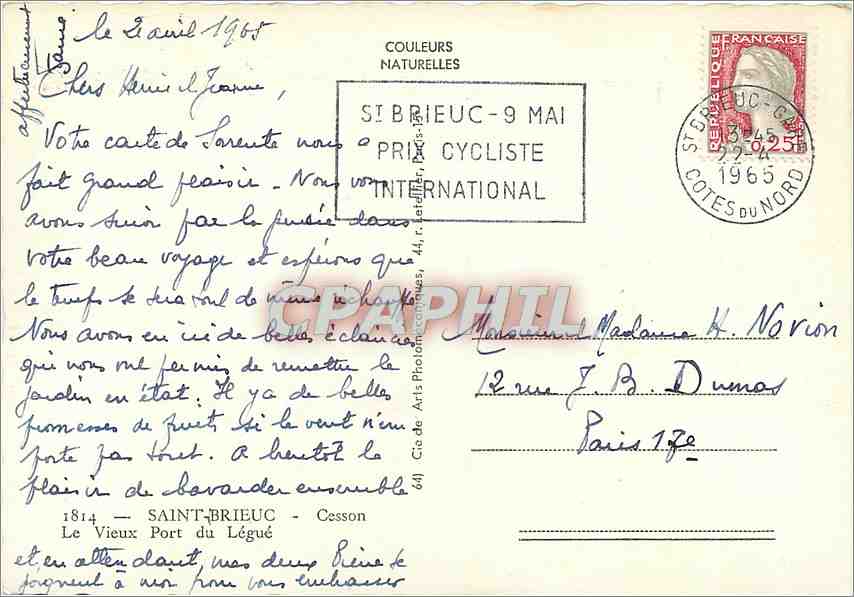 le 2 avril 1965
Chers Henri et Jeanne,
Votre carte de Sorrente nous a
fait grand plaisir - Nous vous
avons suivi par la pensée dans
votre beau voyage et espérons que
le temps se sera de même réchauffé
Nous avons eu ici de belles éclaircies
qui nous ont permis de remettre le
jardin en état. Il y a de belles
promesses de fruits si le vent n'em
porte pas tout. A bientôt le
plaisir de bavarder ensemble
et en attendant, mes deux Pierre se
joignent à moi pour vous embrasser
affectueusement
COULEURS
NATURELLES
ST BRIEUC - 9 MAI
PRIX CYCLISTE
INTERNATIONAL
REPUBLIQUE FRANÇAISE
0,25
ST BRIEUC - GARE
22-4
1965
COTES DU NORD
64) Cie de Arts Photomécaniques, 44, r. Letellier, Paris-15e
CPAPHIL
Monsieur et Madame H. Novion
12 rue J. B. Dumas
Paris 17e
1814 — SAINT-BRIEUC - Cesson
Le Vieux Port du Légué